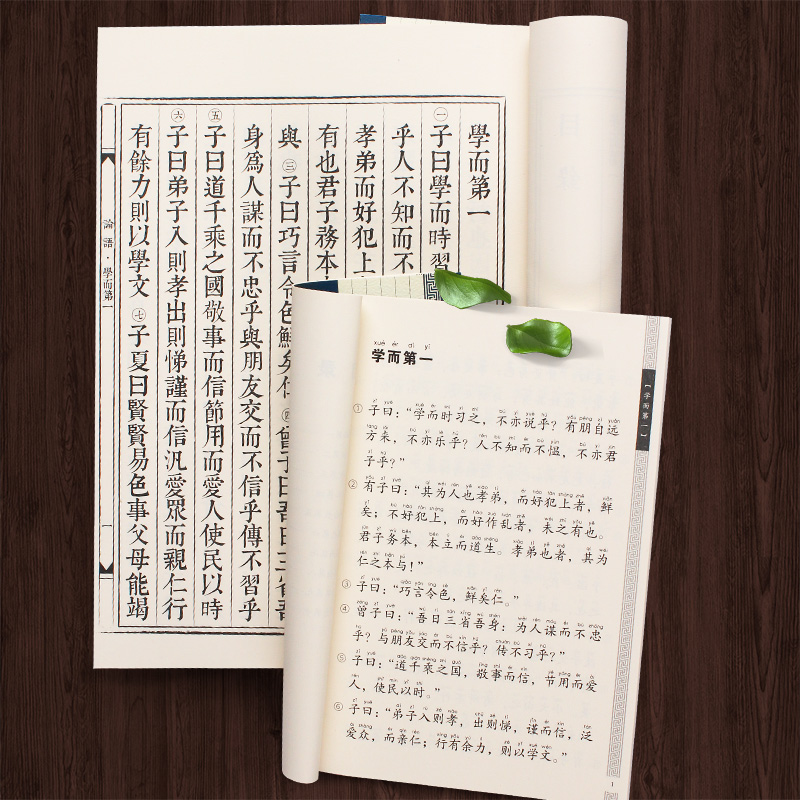 學而第一
㊀子曰學而時習
乎人不知而不
孝弟而好犯上
有也君子務本
與㊂子曰巧言令色鮮矣仁㊃曾子曰吾日三省吾
身爲人謀而不忠乎與朋友交而不信乎傳不習乎
㊄子曰道千乘之國敬事而信節用而愛人使民以時
㊅子曰弟子入則孝出則悌謹而信汎愛眾而親仁行
有餘力則以學文㊆子夏曰賢賢易色事父母能竭
論語·學而第一
一
xué ér dì yī
学而第一
①子曰：“学而时习之，不亦说乎？有朋自远
方来，不亦乐乎？人不知而不愠，不亦君
子乎？”
②有子曰：“其为人也孝弟，而好犯上者，鲜
矣；不好犯上，而好作乱者，未之有也。
君子务本，本立而道生。孝弟也者，其为
仁之本与！”
③子曰：“巧言令色，鲜矣仁。”
④曾子曰：“吾日三省吾身：为人谋而不忠
乎？与朋友交而不信乎？传不习乎？”
⑤子曰：“道千乘之国，敬事而信，节用而爱
人，使民以时。”
⑥子曰：“弟子入则孝，出则悌，谨而信，泛
爱众，而亲仁；行有余力，则以学文。”
【学而第一】
1